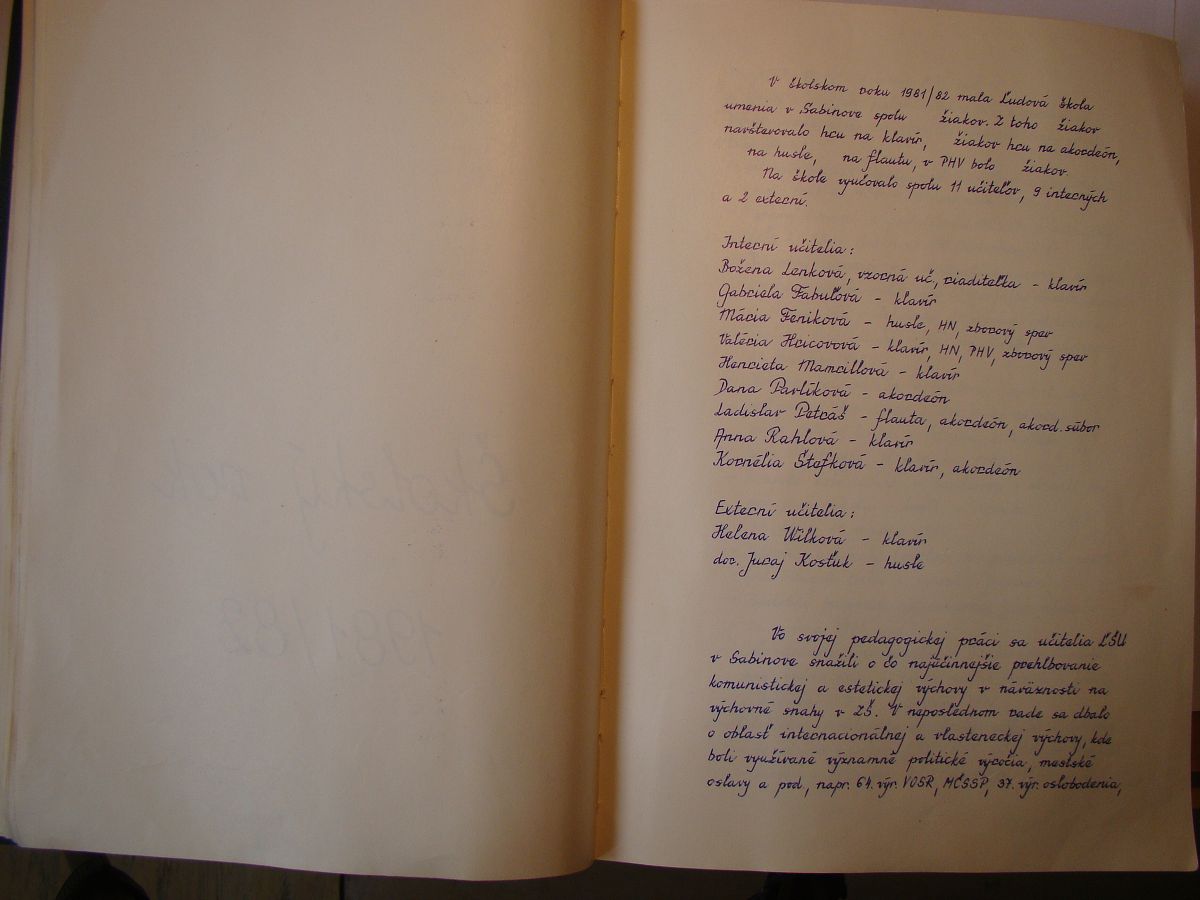 Školský rok
1981/82
V školskom roku 1981/82 mala Ľudová škola
umenia v Sabinove spolu žiakov. Z toho žiakov
navštevovalo hru na klavír, žiakov hru na akordeón,
na husle, na flautu, v PHV bolo žiakov.
Na škole vyučovalo spolu 11 učiteľov, 9 interných
a 2 externí.
Interní učitelia:
Božena Lenková, vzorná uč., riaditeľka - klavír
Gabriela Fabuľová - klavír
Mária Feniková - husle, HN, zborový spev
Valéria Hricovová - klavír, HN, PHV, zborový spev
Henrieta Mamrillová - klavír
Dana Pavlíková - akordeón
Ladislav Petráš - flauta, akordeón, akord. súbor
Anna Rahlová - klavír
Kornélia Štefková - klavír, akordeón
Externí učitelia:
Helena Wilková - klavír
doc. Juraj Kosťuk - husle
Vo svojej pedagogickej práci sa učitelia ĽŠU
v Sabinove snažili o čo najúčinnejšie prehlbovanie
komunistickej a estetickej výchovy v náväznosti na
výchovné snahy v ZŠ. V neposlednom rade sa dbalo
o oblasť internacionálnej a vlasteneckej výchovy, kde
boli využívané významné politické výročia, mestské
oslavy a pod., napr. 64. výr. VOSR, MČSSP, 37. výr. oslobodenia,